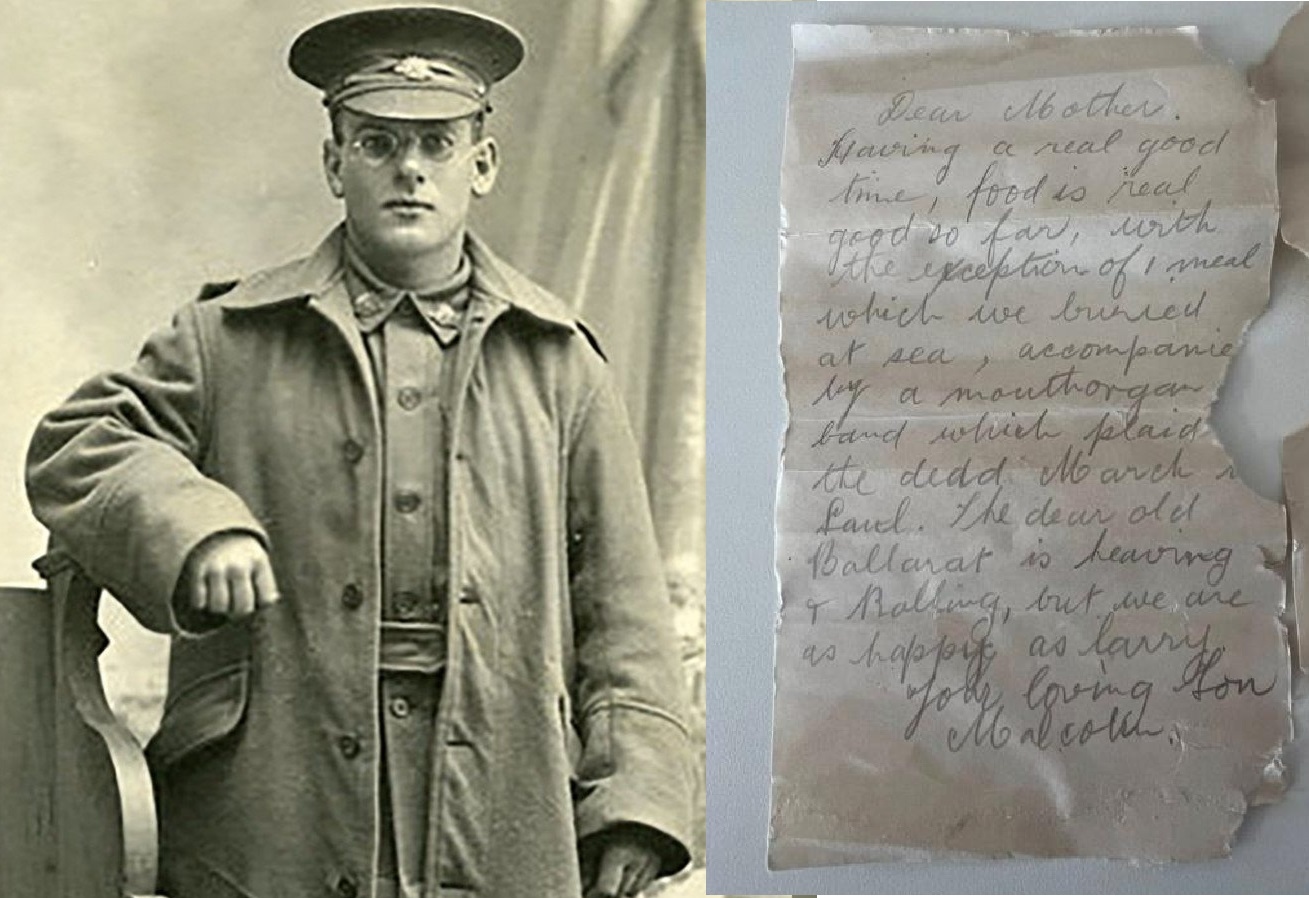 Dear Mother.
Having a real good
time, food is real
good so far, with
the exception of 1 meal
which we buried
at sea, accompanie
by a mouthorgan
band which plaid
the dedd March
Saul. The dear old
Ballarat is heaving
& Rolling, but we are
as happy as larry.
Your loving Son
Malcolm.